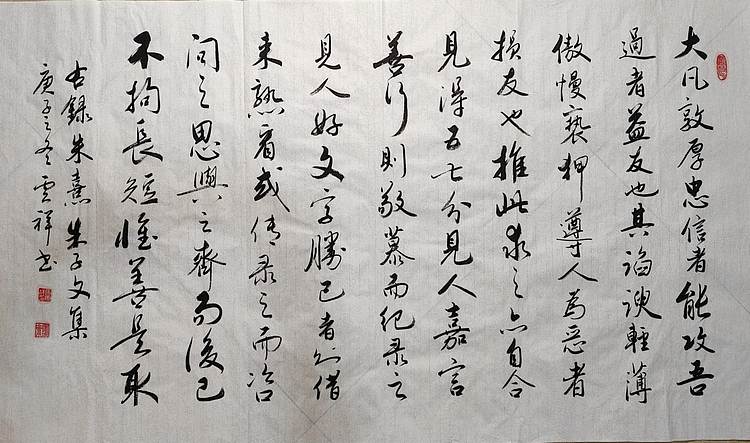 大凡敦厚忠信者能攻吾
過者益友也其諂諛輕薄
傲慢褻狎導人為惡者
損友也推此求之亦自合
見得五七分見人嘉言
善行則敬慕而紀录之
見人好文字勝己者則借
来熟看或傳录之而咨
问之思與之齊而後已
不拘長短惟善是取
右録朱熹朱子文集
庚子之冬雲祥书